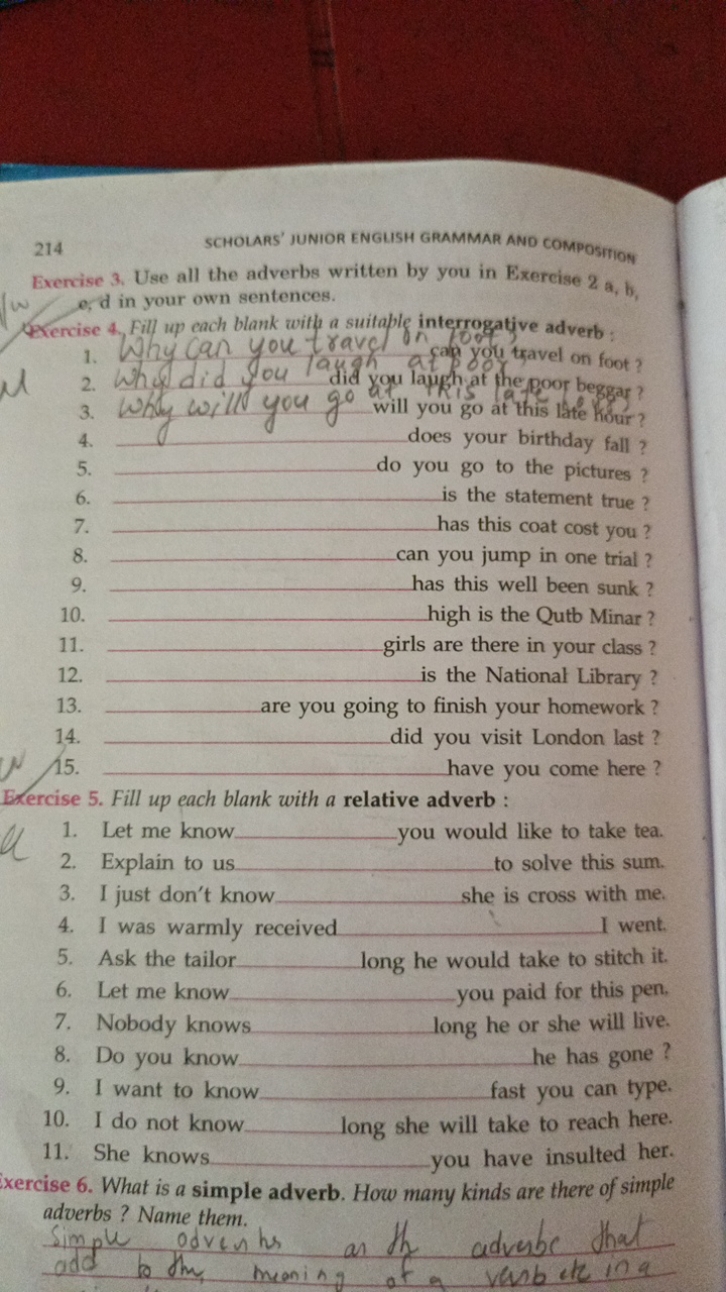 214 SCHOLARS' JUNIOR ENGLISH GRAMMAR AND COMPOSITION
Exercise 3. Use all the adverbs written by you in Exercise 2 a, b,
c, d in your own sentences.
Exercise 4. Fill up each blank with a suitable interrogative adverb :
Why can you travel on foot?
1. can you travel on foot ?
Why did you laugh at poor
2. did you laugh at the poor beggar ?
Why will you go at this late
3. will you go at this late hour ?
4. does your birthday fall ?
5. do you go to the pictures ?
6. is the statement true ?
7. has this coat cost you ?
8. can you jump in one trial ?
9. has this well been sunk ?
10. high is the Qutb Minar ?
11. girls are there in your class ?
12. is the National Library ?
13. are you going to finish your homework ?
14. did you visit London last ?
15. have you come here ?
Exercise 5. Fill up each blank with a relative adverb :
1. Let me know you would like to take tea.
2. Explain to us to solve this sum.
3. I just don't know she is cross with me.
4. I was warmly received I went.
5. Ask the tailor long he would take to stitch it.
6. Let me know you paid for this pen.
7. Nobody knows long he or she will live.
8. Do you know he has gone ?
9. I want to know fast you can type.
10. I do not know long she will take to reach here.
11. She knows you have insulted her.
Exercise 6. What is a simple adverb. How many kinds are there of simple
adverbs ? Name them.
Simple that
add to the meaning of a verb etc in a